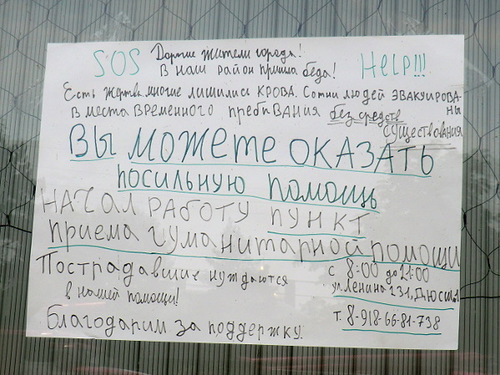 SOS Дорогие жители города! Help!!!
В наш район пришла беда!
Есть жертвы, многие лишились крова. Сотни людей эвакурова-
ны
в места временного пребывания без средств
существования
Вы можете оказать
посильную помощь
Начал работу пункт
приема гуманитарной помощи
с 8:00 до 21:00
Пострадавшие нуждаются
ул. Ленина 231, Дюсш 1
в нашей помощи!
т. 8-918-66-81-738
Благодарим за поддержку.